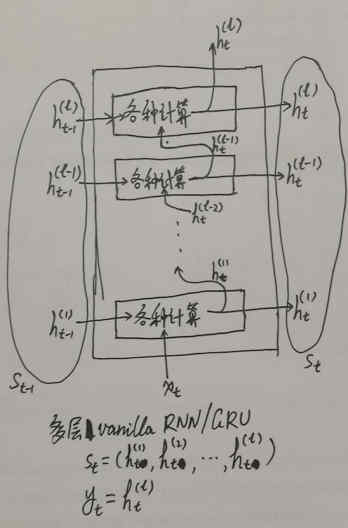 h_t^{(l)}
h_{t-1}^{(l)} 各种计算 h_t^{(l)}
h_t^{(l-1)}
h_{t-1}^{(l-1)} 各种计算 h_t^{(l-1)}
h_t^{(l-2)}
h_t^{(1)}
h_{t-1}^{(1)} 各种计算 h_t^{(1)}
S_{t-1} x_t S_t
多层 vanilla RNN/GRU
S_t=(h_t^{(1)}, h_t^{(2)}, ..., h_t^{(l)})
y_t=h_t^{(l)}